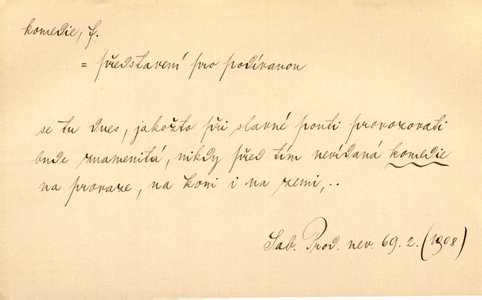 komedie, f.
= představení pro podívanou
se tu dnes, jakožto při slavné pouti provozovati
bude znamenitá, nikdy před tím nevídaná komedie
na provaze, na koni i na zemi,..
Sab. Prod. nev. 69. 2. (1908)